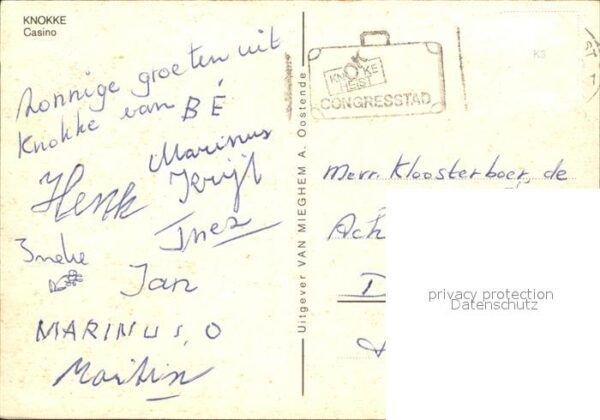 KNOKKE
Casino
zonnige groeten uit
Knokke van BÉ
Marinus
Henk Krijl
Ines
Ineke
Jan
MARINUS, O
Martin
Uitgever VAN MIEGHEM A. Oostende
KNOKKE
HEIST
CONGRESSTAD
K3
Merr. Kloosterboer, de
Ach
D
privacy protection
Datenschutz